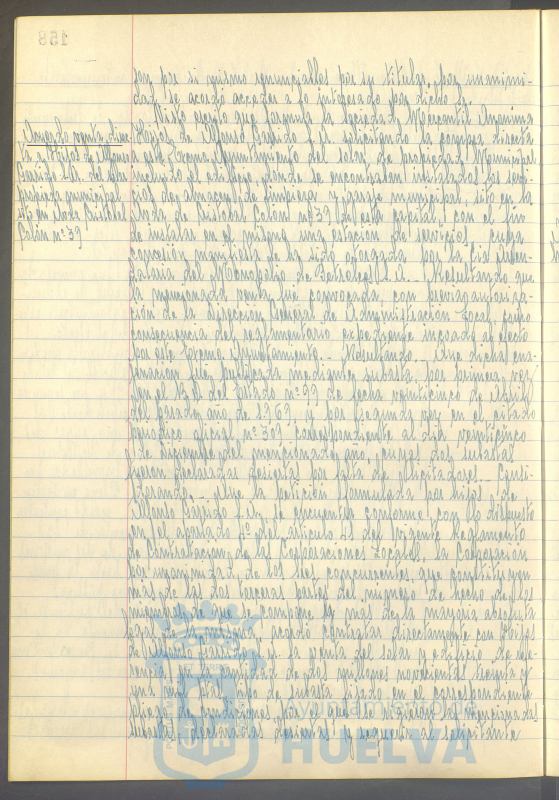 158
son por si mismo renunciables por su titular, por unanimi-
dad, se acordo acceder a lo interesado por dicho
Visto escrito que formula la Sociedad Mercantil Anonima
Acuerdo venta direc-
ta a Hijos de Alfonso
Garrido S.A. del solar
propiedad municipal
sito en Avda Cristobal
Colón nº 39
Hijos de Alfonso Garrido S.A. solicitando la compra directa
a este Excmo. Ayuntamiento del solar, de propiedad Municipal
incluido el edificio, donde se encontraban instalados los servi-
cios de almacen de limpieza y garaje municipal, sito en la
Avda de Cristobal Colon nº 39 de esta capital, con el fin
de instalar en el mismo una estación de servicios, cuya
concesión manifiesta le ha sido otorgada por la Cia Arren-
dataria del Monopolio de Petroleos S.A. - Resultando que
la mencionada venta fue convocada, con previa autoriza-
ción de la Direccion General de Administración Local, como
consecuencia del reglamentario expediente incoado al efecto
por este Excmo Ayuntamiento. - Resultando. - Que dicha ena-
jenacion fue publicada mediante subasta, por primera vez
en el B.O. del Estado nº 99 de fecha veinticinco de Abril
del pasado año de 1969 y por segunda vez en el citado
periodico oficial nº 309 correspondiente al dia veinticinco
de diciembre del mencionado año, cuyas dos subastas
fueron declaradas desiertas por falta de licitadores. - Consi-
derando. - Que la peticion formulada por hijos de
Alfonso Garrido S.A. se encuentra conforme con lo dispuesto
en el apartado del articulo 41 del vigente Reglamento
de Contratacion de las Corporaciones Locales. La Corporación
por unanimidad de los tres concurrentes, que constituyen
más de las dos terceras partes del numero de hecho de los
miembros de que se compone y mas de la mayoria absoluta
legal de la misma, acordo contratar directamente con Hijos
de Alfonso Garrido S.A. la venta del solar y edificio de refe-
rencia en la cantidad de dos millones novecientas treinta y
una mil ptas, tipo de subasta fijado en el correspondiente
pliego de condiciones por el que se rigieron las mencionadas
subastas declaradas desiertas y requerir al solicitante
Ayuntamiento de
HUELVA